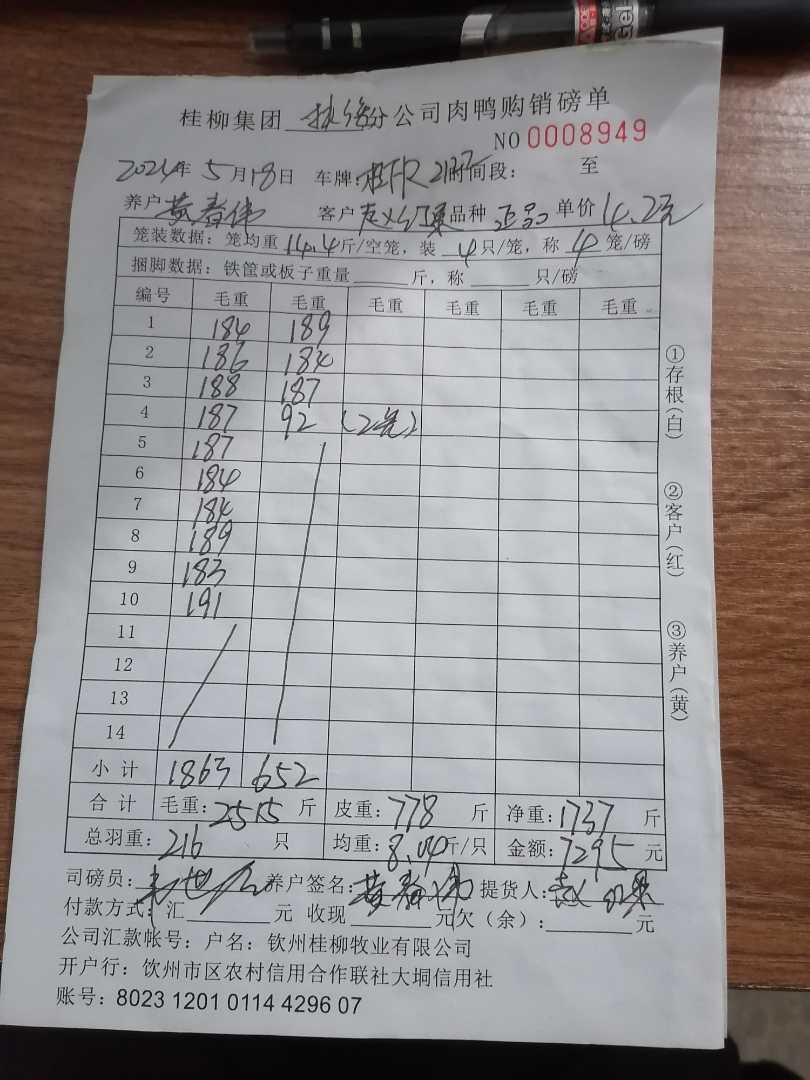 桂柳集团 分公司肉鸭购销磅单
NO 0008949
2021年5月18日 车牌: 时间段: 至
养户 黄春伟 客户 品种 正品 单价 4.2元
笼装数据: 笼均重 14.4 斤/空笼, 装 4 只/笼, 称 4 笼/磅
捆脚数据: 铁筐或板子重量 斤, 称 只/磅
编号 毛重 毛重 毛重 毛重 毛重 毛重
1 184 189
2 186 184
3 188 187
4 187 92 (2笼)
5 187
6 184
7 184
8 189
9 183
10 191
11
12
13
14
小计 1863 652
合计 毛重: 2515 斤 皮重: 778 斤 净重: 1737 斤
总羽重: 216 只 均重: 8.04 斤/只 金额: 7295 元
司磅员: 养户签名: 黄春伟 提货人:
付款方式: 汇 元 收现 元欠(余): 元
公司汇款帐号: 户名: 钦州桂柳牧业有限公司
开户行: 饮州市区农村信用合作联社大垌信用社
账号: 8023 1201 0114 4296 07
①存根(白)
②客户(红)
③养户(黄)
Gel